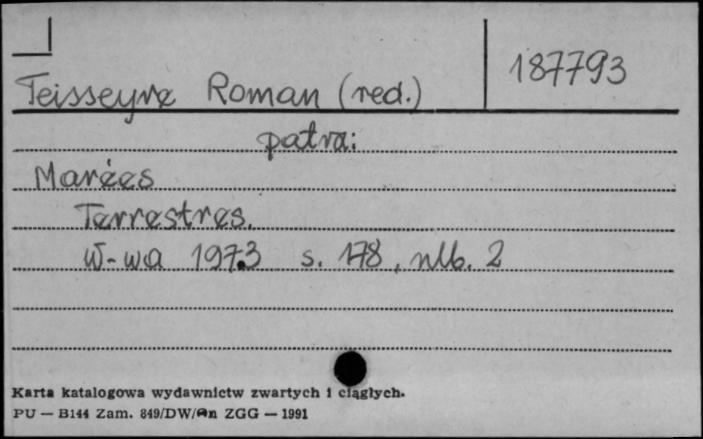 Teisseyre Roman (red.)
187793
patrz:
Marées
Terrestres.
W-wa 1973 s. 178, nlb. 2
Karta katalogowa wydawnictw zwartych i ciągłych.
PU — B144 Zam. 849/DW/An ZGG — 1991